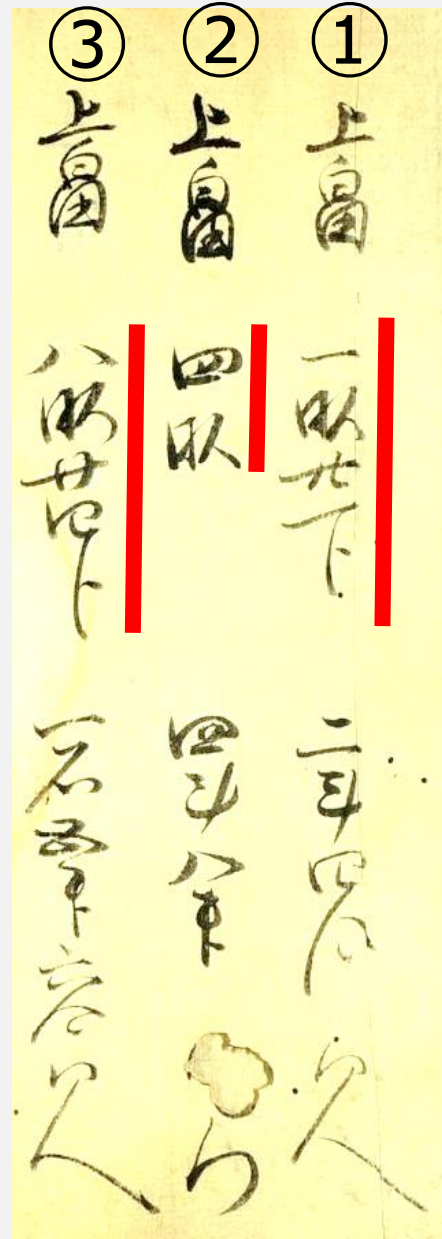 ①
上畠 一畝廿一卜 二斗四合 同人
②
上畠 四畝 四斗八升
③
上畠 八畝廿四卜 一石五升六合 同人